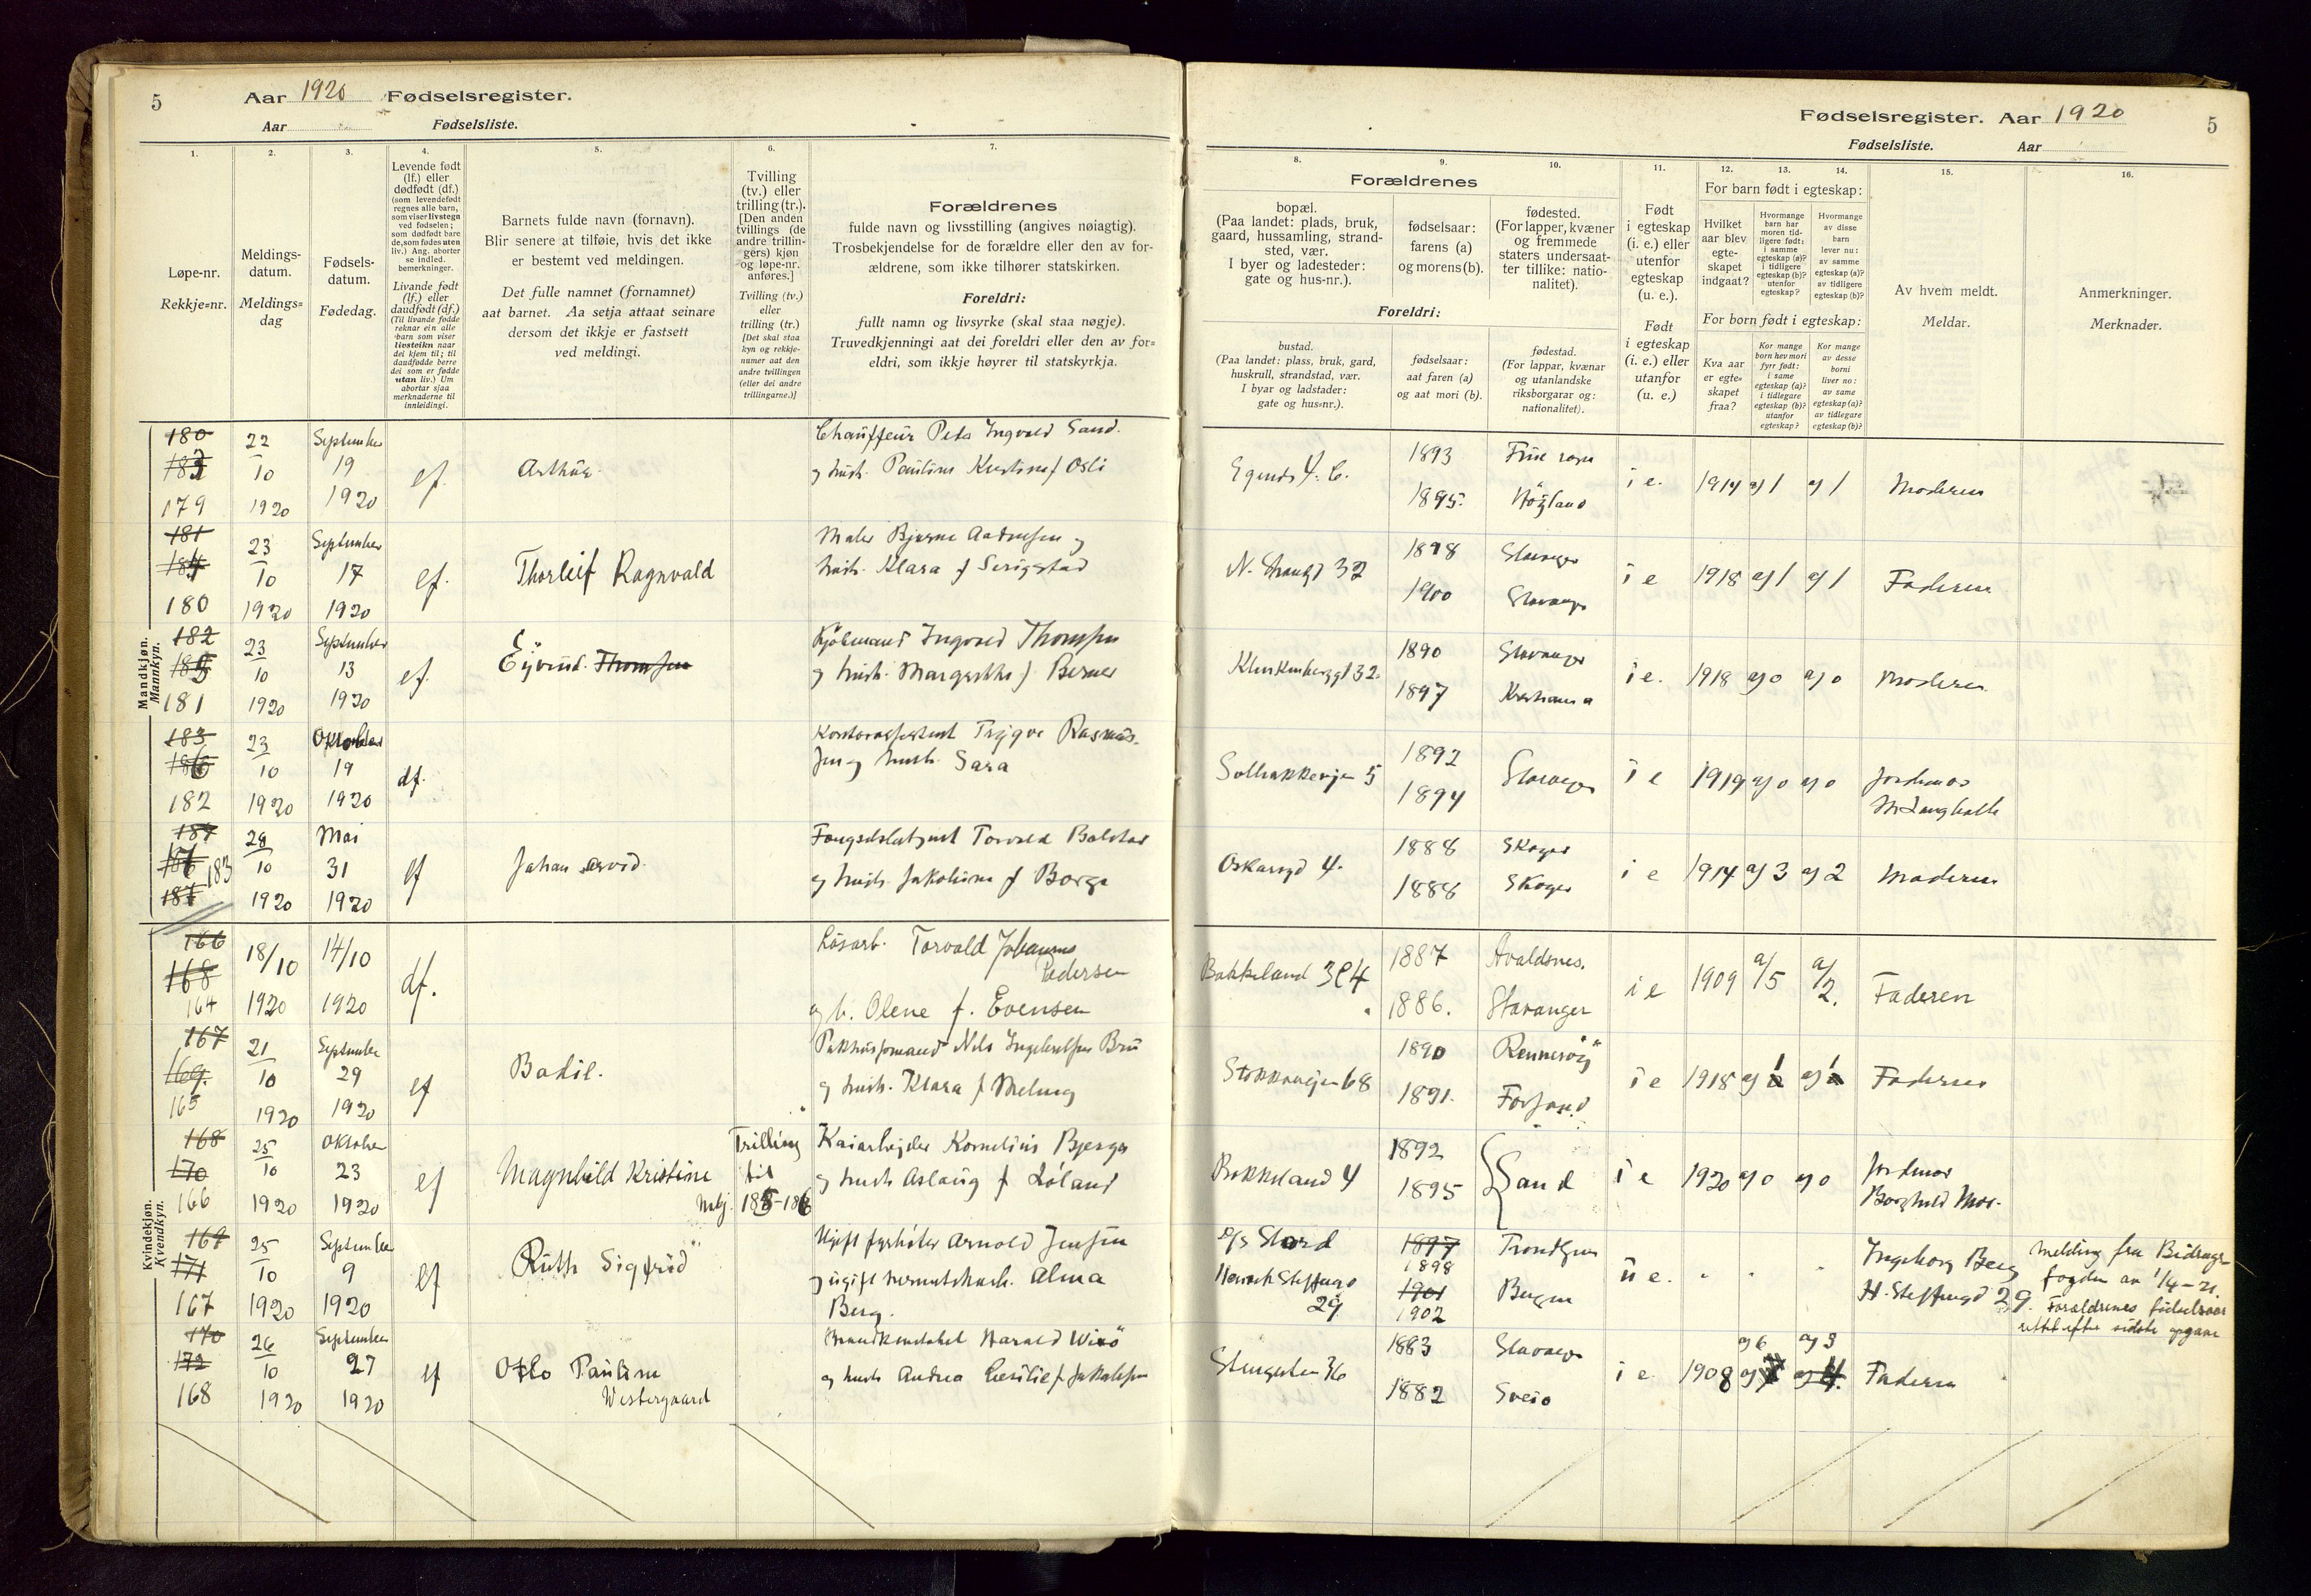 5
Aar 1920 Fødselsregister.
Aar Fødselsliste.
1.
Løpe-nr.
Rekkje-nr.
2.
Meldings-
datum.
Meldings-
dag
3.
Fødsels-
datum.
Fødedag.
4.
Levende født
(lf.) eller
dødfødt (df.)
(som levendefødt
regnes alle barn,
som viser livstegn
ved fødselen;
som dødfødt bare
de, som fødes uten
liv.) Ang. aborter
se indled.
bemerkninger.
Livande født
(lf.) eller
daudfødt (df.)
(Til livande fødde
reknar ein alle
barn som viser
livsteikn naar
dei kjem til; til
daudfødde berre
dei som er fødde
utan liv.) Um
abortar sjaa
merknaderne til
innleidingi.
5.
Barnets fulde navn (fornavn).
Blir senere at tilføie, hvis det ikke
er bestemt ved meldingen.
Det fulle namnet (fornamnet)
aat barnet. Aa setja attaat seinare
dersom det ikkje er fastsett
ved meldingi.
6.
Tvilling
(tv.) eller
trilling (tr.).
[Den anden
tvillings (de
andre trillin-
gers) kjøn
og løpe-nr.
anføres.]
Tvilling (tv.)
eller
trilling (tr.)
[Det skal staa
kyn og rekkje-
numer aat den
andre tvillingen
(eller dei andre
trillingarne.)]
7.
Forældrenes
fulde navn og livsstilling (angives nøiagtig).
Trosbekjendelse for de forældre eller den av for-
ældrene, som ikke tilhører statskirken.
Foreldri:
fullt namn og livsyrke (skal staa nøgje).
Truvedkjenningi aat dei foreldri eller den av for-
eldri, som ikkje høyrer til statskyrkja.
Mandkjøn.
Mannkyn.
180
179
22
10
1920
September
19
1920
Arthur
Chauffeur Peder Ingvald Sand
og hust. Pauline Kristine f Osli
181
180
23
10
1920
September
17
1920
Thorleif Ragnvald
Maler Bjarne
og hust. Klara f Serigstad
182
181
23
10
1920
September
13
1920
Eÿvind Thomsen
Kjøbmand Ingvald Thomsen
og hust. Margrethe f Berner
183
186
182
23
10
1920
Oktober
19
1920
df.
Trygve Rasmus-
sen og hust. Sara
183
28
10
1920
Mai
31
1920
Johan Arvid
og hust. Jakobine f Borge
Kvindekjøn.
Kvendkyn.
166
168
164
18/10
1920
14/10
1920
df.
Løsarb. Torvald Johannes
Pedersen
og h. Olene f. Evensen
167
169.
165
21
10
1920
September
29
1920
Bodil.
Pakhusformand Nils Ingebretsen Bru
og hust. Klara f Meling
168
170
166
25
10
1920
Oktober
23
1920
Magnhild Kristine
Trilling
til
Kaiarbejder Kornelius Bjerga
og hust. Aslaug f Løland
171
167
25
10
1920
September
9
1920
Ruth Sigfrid
Ugift fyrbøter Arnold Jensen
og ugift Alma
Berg.
170
172
168
26
10
1920
September
27
1920
Otto Pauline
Westergaard
Brandkonstabel Harald Wisø
og hust. Andrea Cecilie f Jakobsen
Fødselsregister. Aar 1920
5
Fødselsliste. Aar
8.
Forældrenes
bopæl.
(Paa landet: plads, bruk,
gaard, hussamling, strand-
sted, vær.
I byer og ladesteder:
gate og hus-nr.).
Foreldri:
bustad.
(Paa landet: plass, bruk, gard,
huskrull, strandstad, vær.
I byar og ladstader:
gate og hus-nr.).
9.
fødselsaar:
farens (a)
og morens (b).
fødselsaar:
aat faren (a)
og aat mori (b).
10.
fødested.
(For lapper, kvæner
og fremmede
staters undersaat-
ter tillike: natio-
nalitet).
fødestad.
(For lappar, kvænar
og utanlandske
riksborgarar og:
nationalitet).
11.
Født
i egteskap
(i. e.) eller
utenfor
egteskap
(u. e.).
Født
i egteskap
(i. e.) eller
utanfor
(u. e.)
12.
13.
14.
For barn født i egteskap:
Hvilket
aar blev
egte-
skapet
indgaat?
Hvormange
barn har
moren tid-
ligere født:
i samme
egteskap (a)?
i tidligere
egteskap (b)?
utenfor
egteskap?
Hvormange
av disse
barn
lever nu:
av samme
egteskap (a)?
av tidligere
egteskap (b)?
For born født i egteskap:
Kva aar
er egte-
skapet
fraa?
Kor mange
born hev mori
fyrr født:
i same
egteskap (a)?
i tidlegare
egteskap (b)?
utanfor
egteskap?
Kor mange
av desse
borni
liver no:
av same
egteskap (a)?
av tidlegare
egteskap (b)?
15.
Av hvem meldt.
Meldar.
16.
Anmerkninger.
Merknader.
Egends g. 6.
1893
1895
Høgland
i e.
1914 a) 1 a) 1
Moderen
N. Strandgt 32
1898
1900
Stavanger
Stavanger
i e
1918 a) 1 a) 1
Faderen
32
1890
1897
Stavanger
Kristiania
i e.
1918 a) 0 a) 0
Moderen
Solbakkevejen 5
1892
1894
Stavanger
i e
1919 a) 0 a) 0
Jordmor
M. Langbakk
Oskarsgd 4.
1888
1888
Skoger
Skoger
i e
1914 a) 3 a) 2
Moderen
Bakkeland 34
1887
1886.
Avaldsnes.
Stavanger
i e
1909 a/5 a/2.
Faderen
Stokkavejen 68
1890
1891.
Rennesøy
Forsand
i e
1918 a) 1 a) 1
Faderen
Bakkeland 4
1892
1895
Sand
i e
1920 a) 0 a) 0
Jordmor
Borghild Moe.
S/s Stord
Henrik Steffengd
29
1897
1898
1901
1902
Trondhjem
Bergen
u e.
Ingeborg Berg
H. Steffengd 29.
Melding fra Bidrags-
fogden av 1/4-21.
Forældrenes fødselsaar
rettet efter sidste opgave
36
1883
1882
Stavanger
Sveio
i e
1908 a) 6
Faderen